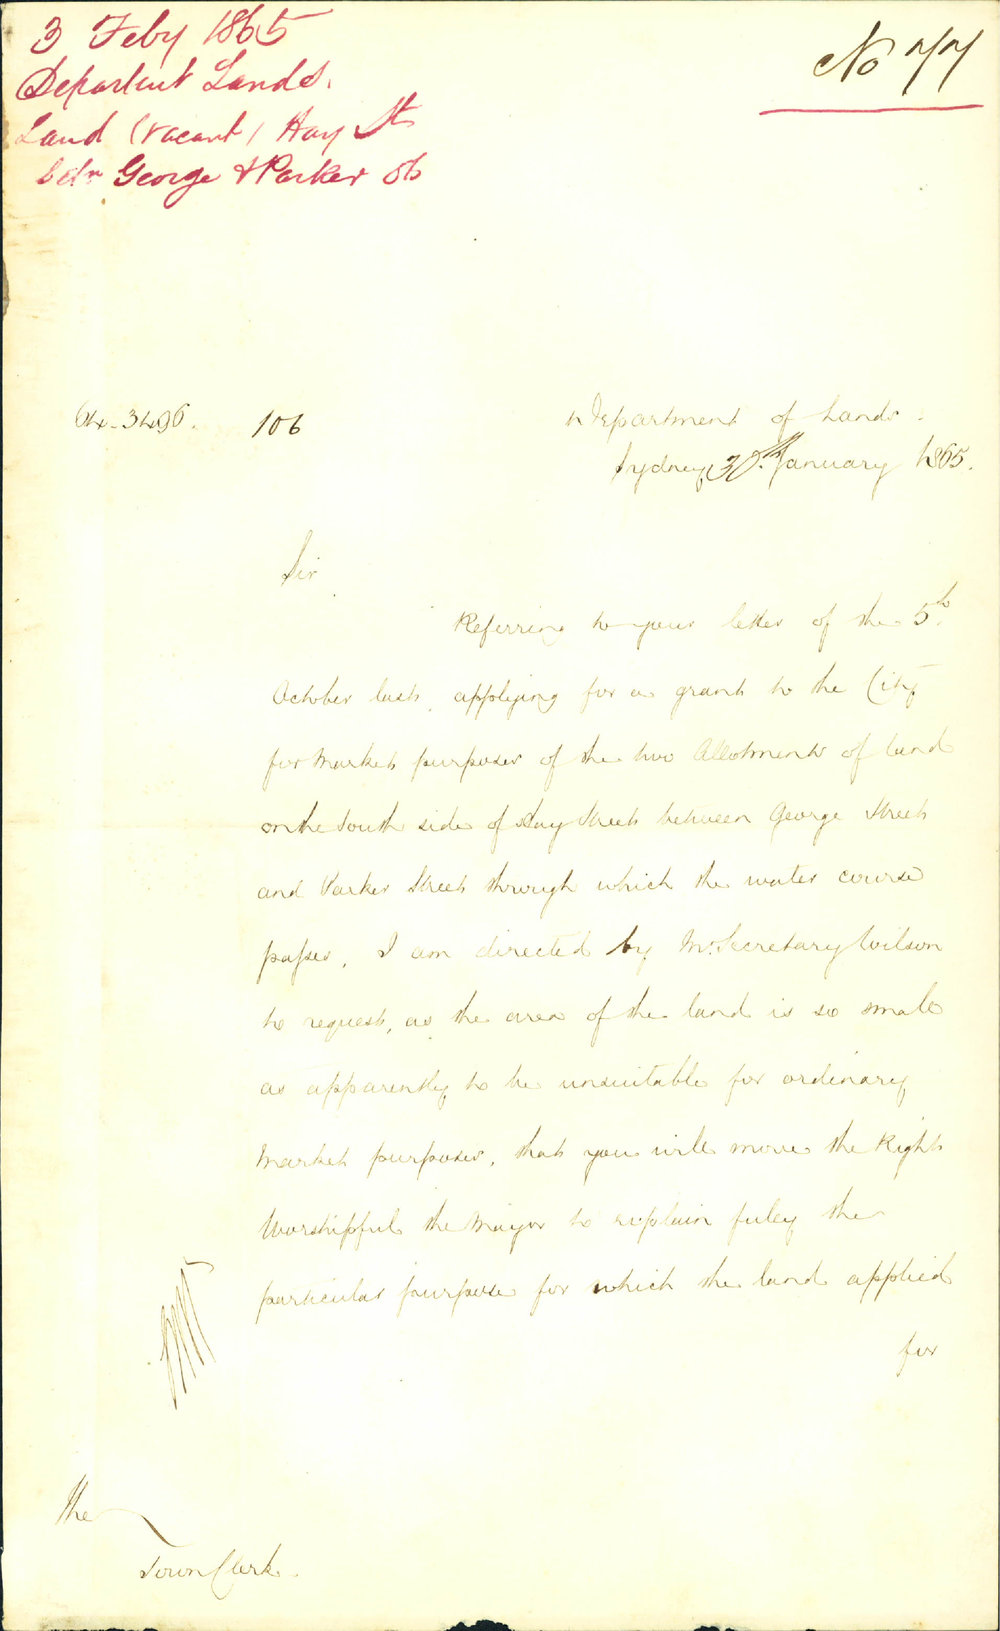 3 Feby 1865
No 77
Department Lands.
Land (vacant) Hay St
bdn George & Parker Sts
64-3496. 106
Department of Lands.
Sydney 30th January 1865.
Sir
Referring to your letter of the 5th
October last, applying for a grant to the City
for Market purposes of the two Allotments of land
on the South side of Hay Street between George Street
and Parker Street through which the water course
passes, I am directed by Mr. Secretary Wilson
to request, as the area of the land is so small
as apparently to be unsuitable for ordinary
Market purposes, that you will move the Right
Worshipful the Mayor to explain fully the
particular purpose for which the land applied
for
The
Town Clerk.